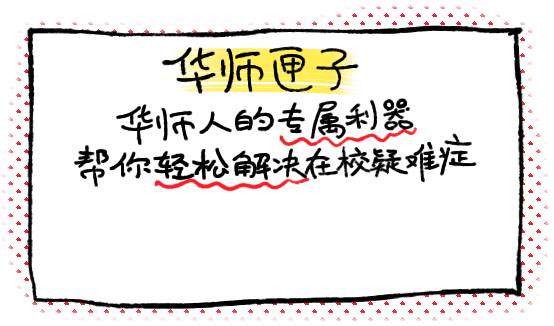 华师匣子
华师人的专属利器
帮你轻松解决在校疑难症